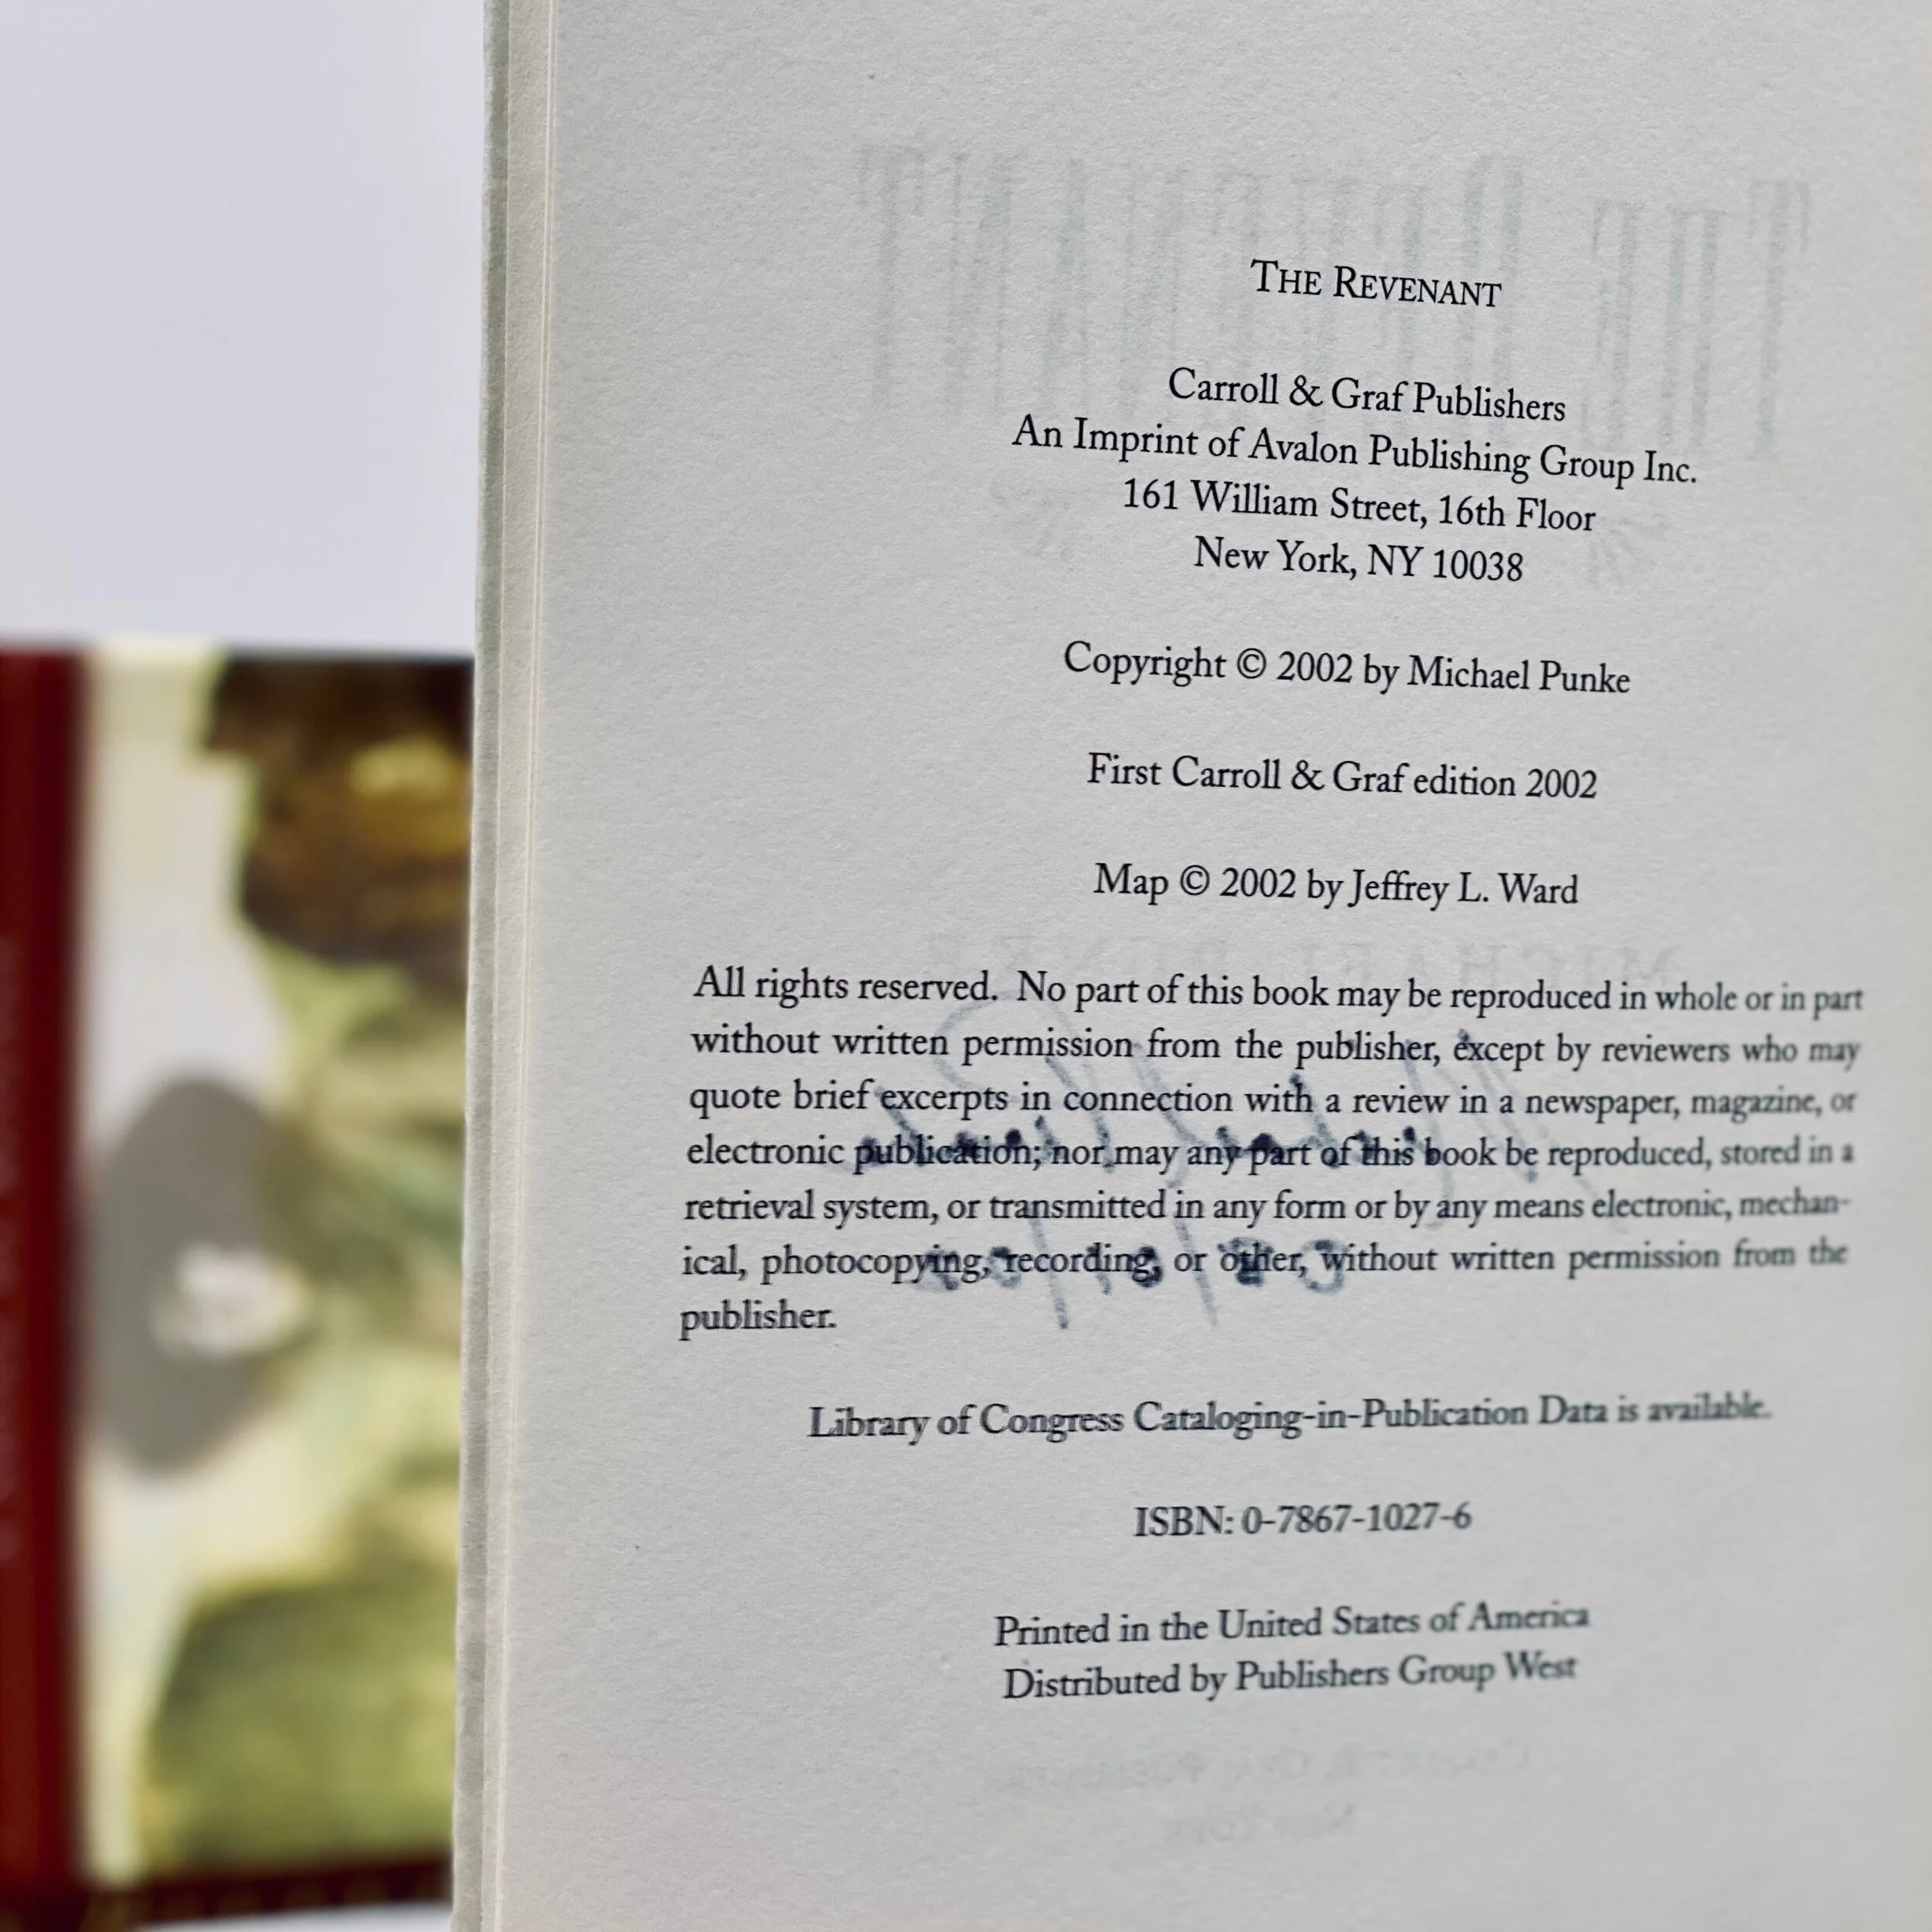 THE REVENANT
Carroll & Graf Publishers
An Imprint of Avalon Publishing Group Inc.
161 William Street, 16th Floor
New York, NY 10038
Copyright © 2002 by Michael Punke
First Carroll & Graf edition 2002
Map © 2002 by Jeffrey L. Ward
All rights reserved. No part of this book may be reproduced in whole or in part
without written permission from the publisher, except by reviewers who may
quote brief excerpts in connection with a review in a newspaper, magazine, or
electronic publication; nor may any part of this book be reproduced, stored in a
retrieval system, or transmitted in any form or by any means electronic, mechan-
ical, photocopying, recording, or other, without written permission from the
publisher.
Library of Congress Cataloging-in-Publication Data is available.
ISBN: 0-7867-1027-6
Printed in the United States of America
Distributed by Publishers Group West